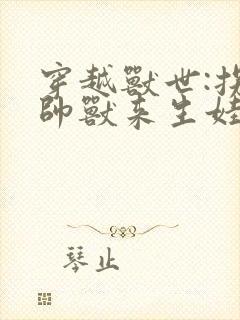 穿越獸世:拐
帥獸來生娃
琴止